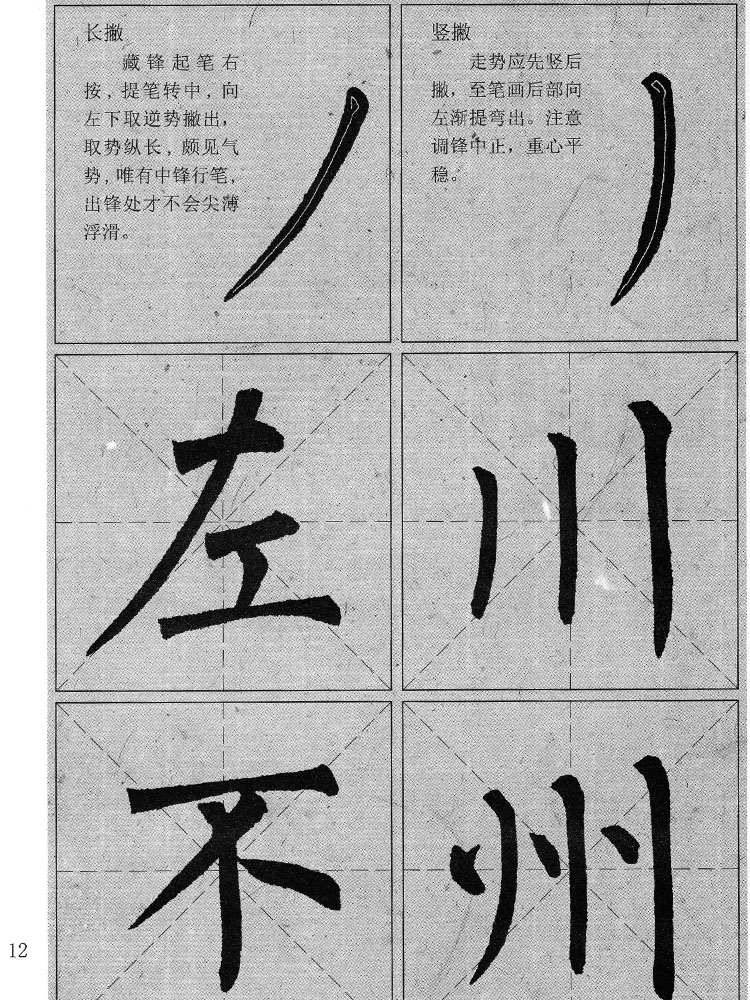 长撇
藏锋起笔右
按，提笔转中，向
左下取逆势撇出，
取势纵长，颇见气
势，唯有中锋行笔，
出锋处才不会尖薄
浮滑。
竖撇
走势应先竖后
撇，至笔画后部向
左渐提弯出。注意
调锋中正，重心平
稳。
左
川
不
州
12